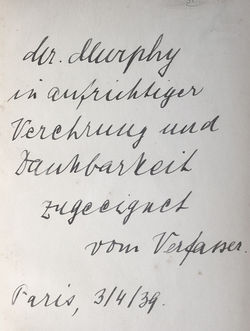 Mr. Murphy
in aufrichtiger
Verehrung und
Dankbarkeit
zugeeignet
vom Verfasser.
Paris, 3/4/39.